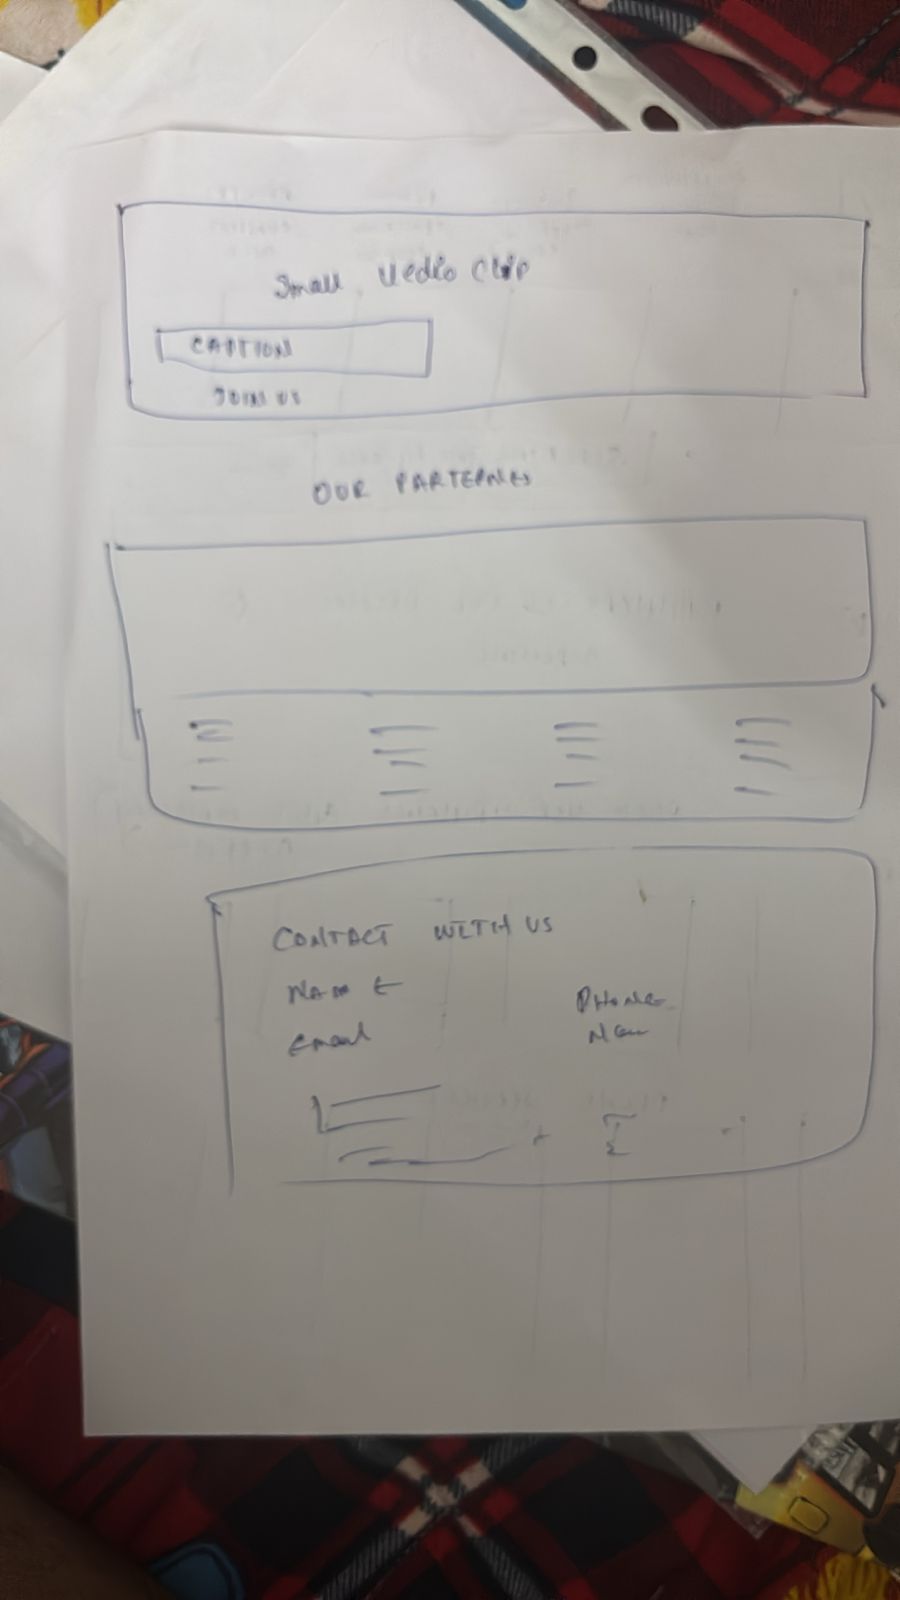 Small Vedio Clip
CAPTION
JOIN US
OUR PARTERNES
CONTACT WITH US
NAME
Email
PHONE